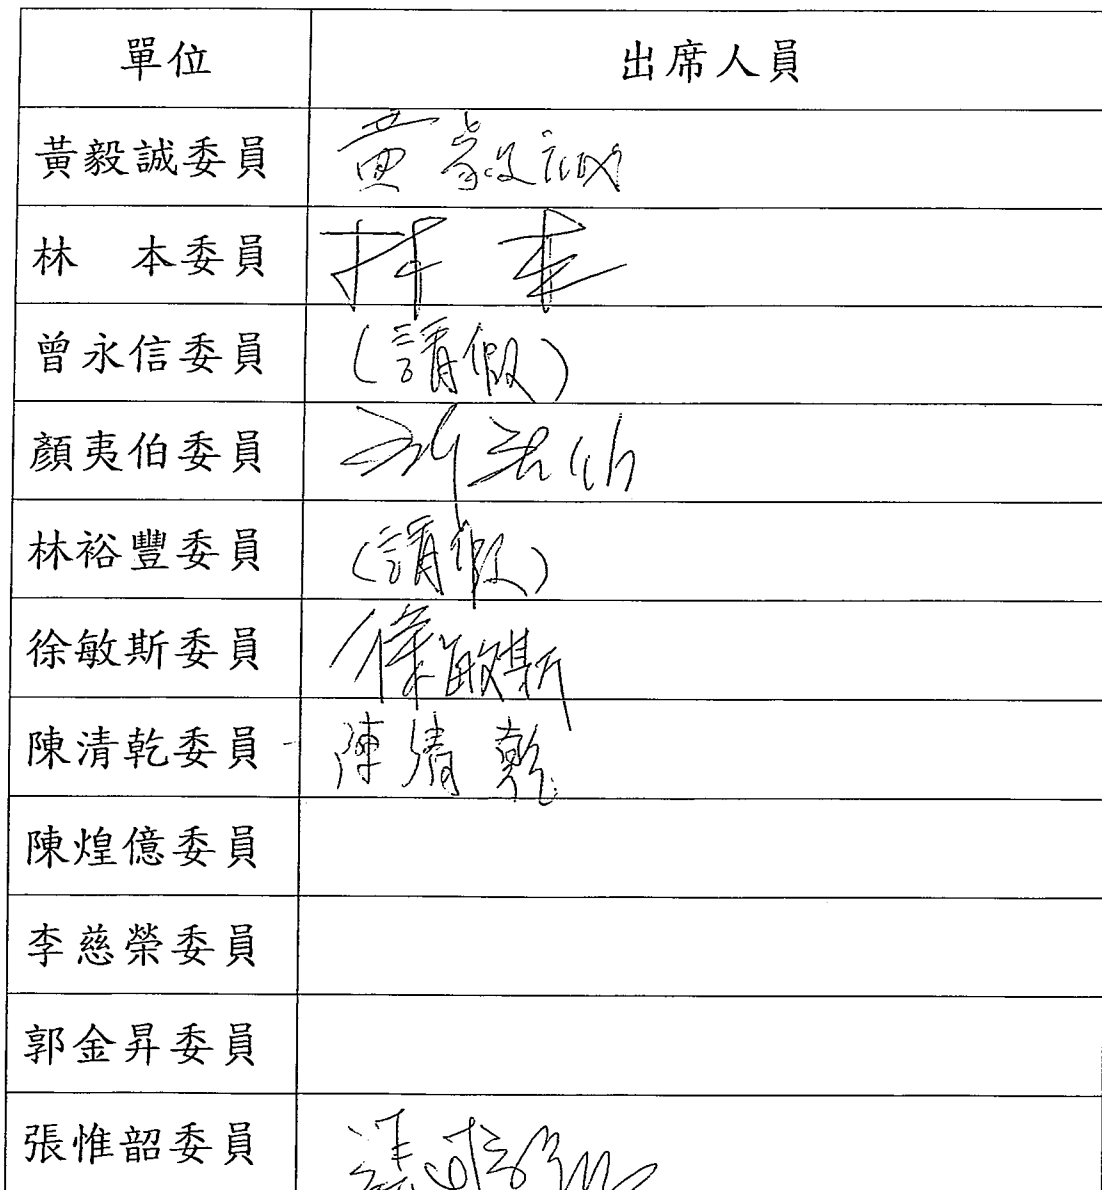 單位 出席人員
黃毅誠委員 黃毅誠
林 本委員 林 本
曾永信委員 (請假)
顏夷伯委員
林裕豐委員 (請假)
徐敏斯委員 徐敏斯
陳清乾委員 陳清乾
陳煌億委員
李慈榮委員
郭金昇委員
張惟韶委員